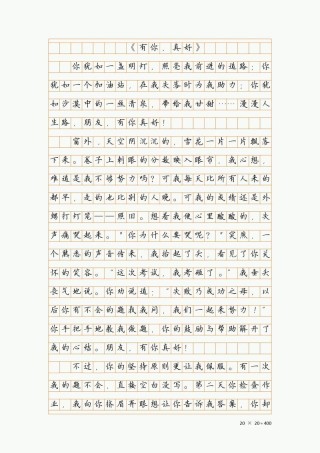 《有你，真好》
你犹如一盏明灯，照亮我前进的道路；你
犹如一个加油站，在我失落时为我助力；你犹
如沙漠中的一丝清泉，带给我甘甜……漫漫人
生路，朋友，有你真好！
窗外，天空阴沉沉的，雪花一片一片飘落
下来。卷子上刺眼的分数映入眼帘，我心想，
难道是我不够努力吗？可我每天比所有人来的
都早，走的也比别人晚。可我的成绩还是外
甥打灯笼——照旧。想着我便心里酸酸的，次
声痛哭起来。“你为什么要哭呢？”突然，一
个熟悉的声音传来，我抬起了头，看见了你关
怀的笑容。“这次考试，我考砸了。”我垂头
丧气地说。你劝说道：“次败乃成功之母，以
后你有不会的题我我问，我们一起来努力！”
你手把手地教我做题，你的鼓励与帮助解开了
我的心结。朋友，有你真好！
不过，你的坚持原则更让我佩服。有一次
我的题不会，直接空白没写。第二天你检查作
业，我向你挤眉弄眼想让你告诉我答案，你却
20 × 20 = 400